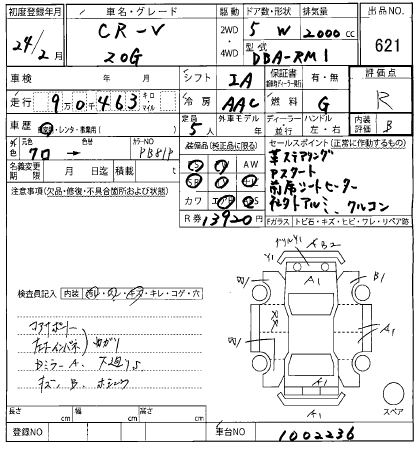 初度登録年月 車名・グレード 駆動 ドア数・形状 排気量 出品NO.
24/2月 CR-V 20G 2WD・4WD 5 W 2000cc 621
型式 DBA-RM1
車検 シフト IA 保証書 有・無 評価点 R
走行 9万0千463 キロ マイル 冷房 AAC 燃料 G
定員 5人 外車モデル 年 ディーラー 並行 ハンドル 左・右 内装評価 B
車歴 自家用・レンタ・教習用( )
外色 元色 70 → 色替 カラーNO PB81P
装備品(純正品に限る)
PS PW AW
SR ナビ TV
カワ エアB ABS
R券 13920円
セールスポイント(正常に作動するもの)
革ステアリング
Pスタート
前席シートヒーター
社外アルミ、クルコン
名義変更期限 月 日迄 積載 t
注意事項(欠品・修復・不具合箇所および状態)
Fガラス トビ石・キズ・ヒビ・ワレ・リペア跡
検査員記入 内装 汚レ・スレ・キズ・キレ・コゲ・穴
Dミラー A.
B. ホシ
Y1
A B2
Y1
A1
B1
A1
A1
A1
スペア
長さ cm 幅 cm 高さ cm
登録NO 車台NO 1002236